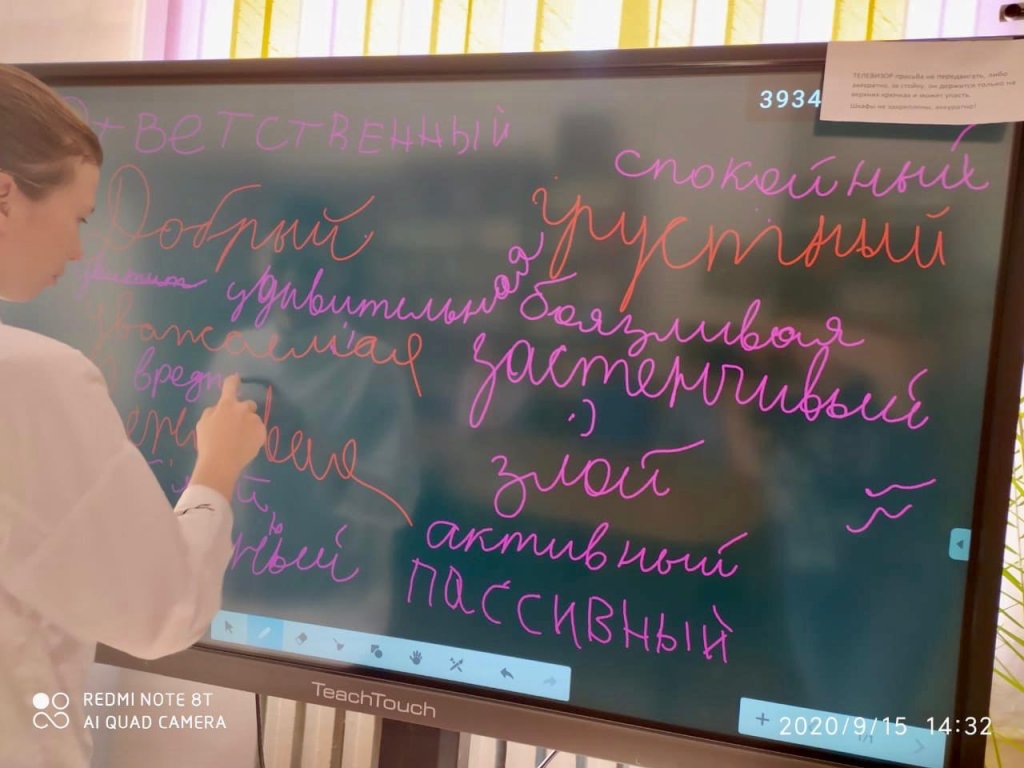 3934
ТЕЛЕВИЗОР просьба не передвигать, либо
аккуратно, за стойку, он держится только на
верхних крючках и может упасть.
Шкафы не закреплены, аккуратно!
Ответственный
спокойный
Добрый
грустный
удивительная
боязливая
уважаемая
застенчивый
вредн
:)
злой
активный
ный
ПАССИВНЫЙ
TeachTouch
REDMI NOTE 8T
AI QUAD CAMERA
2020/9/15 14:32
1/1